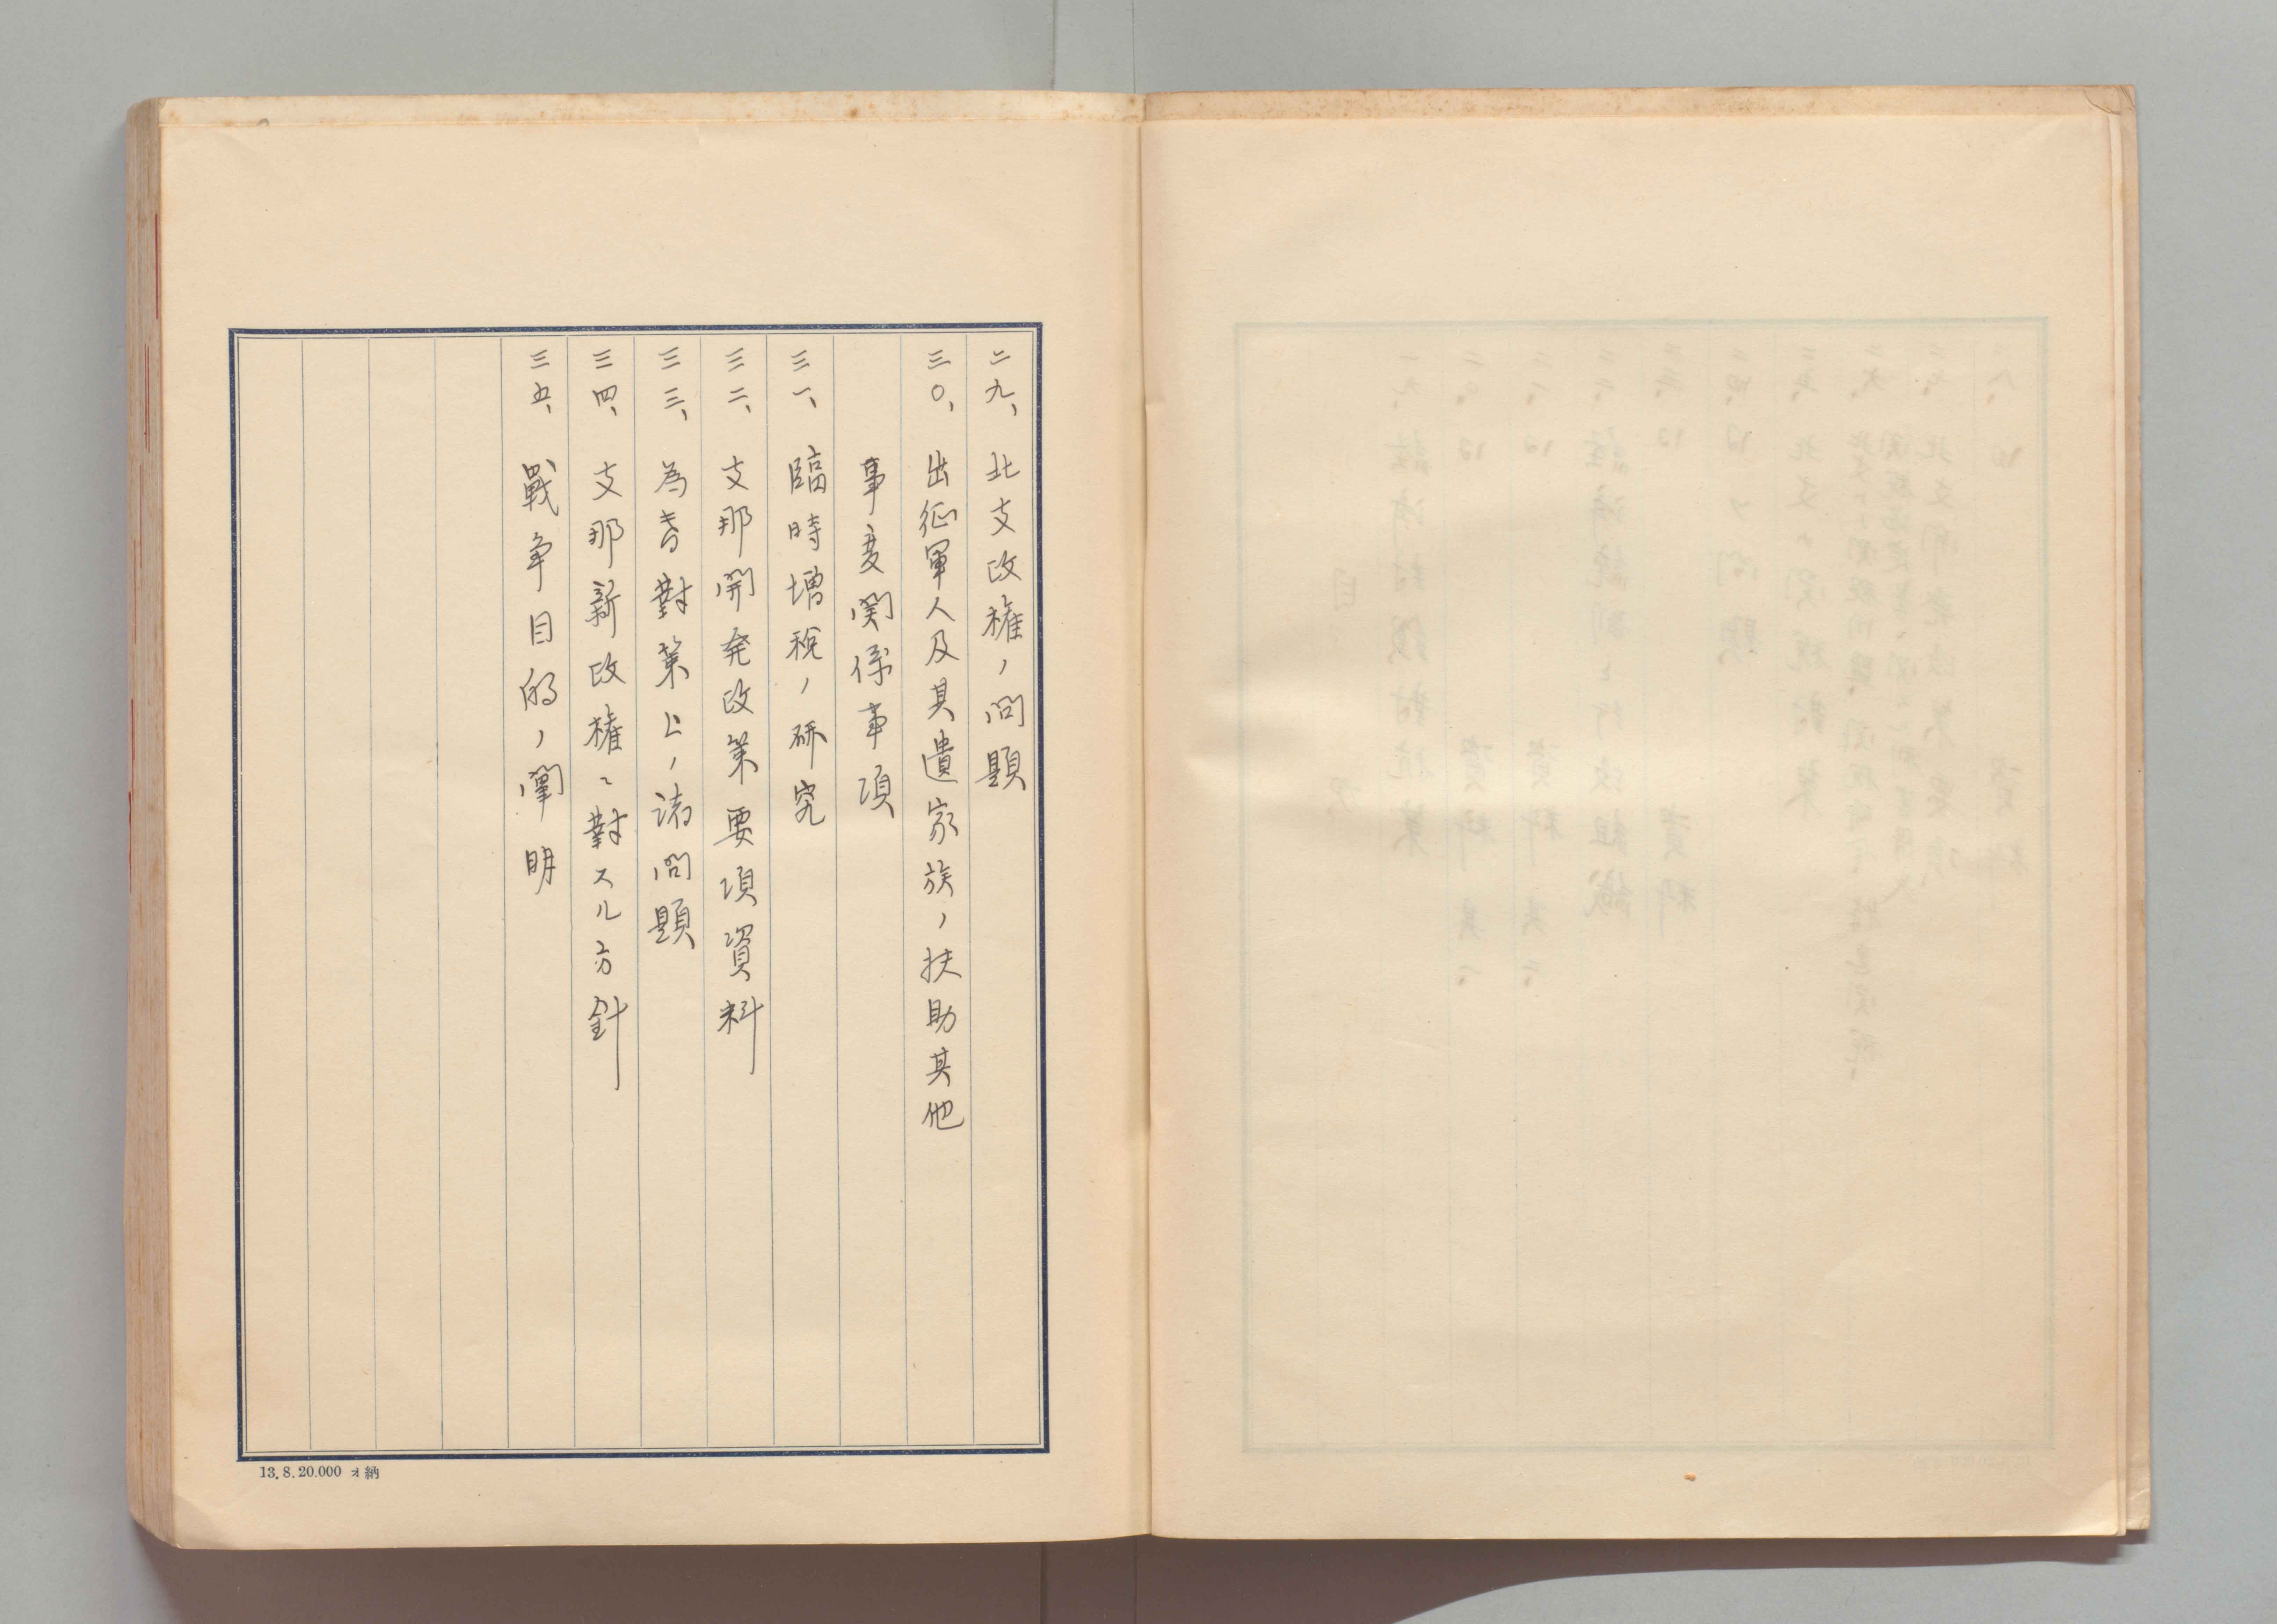 二九、北支政権ノ問題
三〇、出征軍人及其遺家族ノ扶助其他
事変関係事項
三一、臨時増税ノ研究
三二、支那開発政策要項資料
三三、為替對策上ノ諸問題
三四、支那新政権ニ對スル方針
三五、戰争目的ノ闡明
13.8.20.000 ォ納